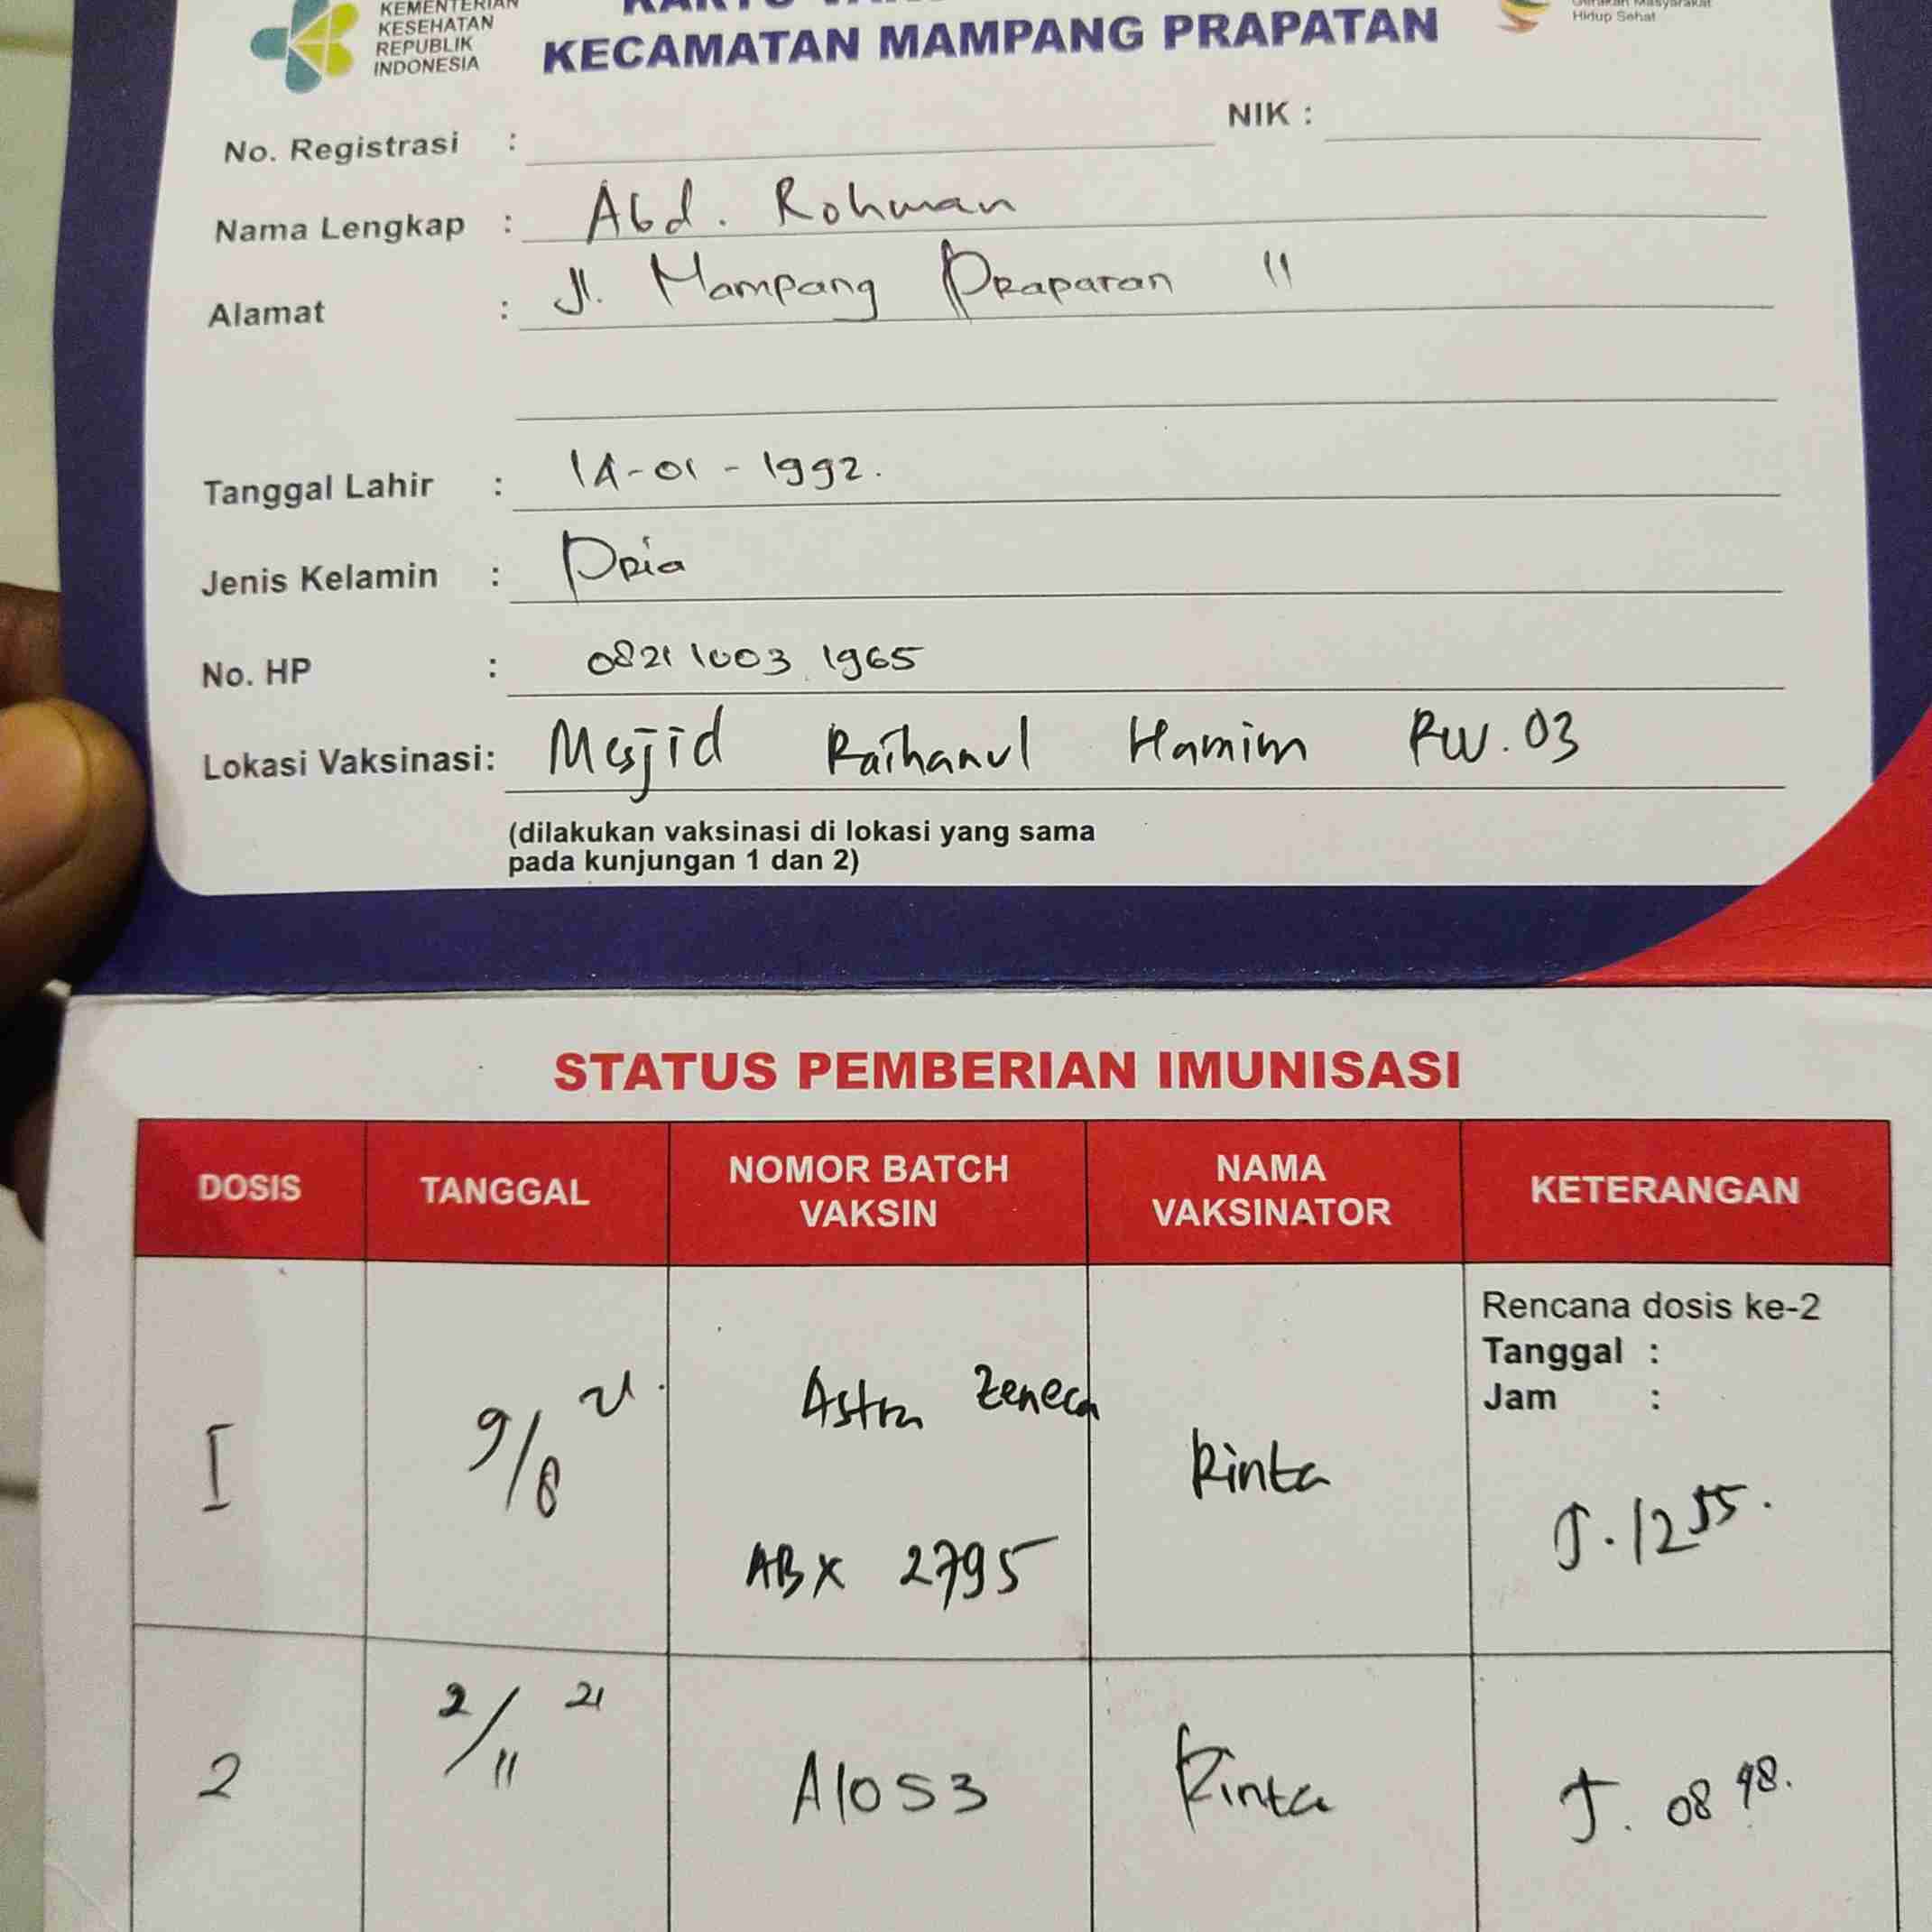 KEMENTERIAN
KESEHATAN
REPUBLIK
INDONESIA
KECAMATAN MAMPANG PRAPATAN
Gerakan Masyarakat
Hidup Sehat
No. Registrasi :
NIK :
Nama Lengkap : Abd. Rohman
Alamat : Jl. Mampang Praparan 11
Tanggal Lahir : 14-01-1992.
Jenis Kelamin : Pria
No. HP : 0821 1003 1965
Lokasi Vaksinasi: Mesjid Raihanul Hamim RW. 03
(dilakukan vaksinasi di lokasi yang sama
pada kunjungan 1 dan 2)
STATUS PEMBERIAN IMUNISASI
DOSIS TANGGAL NOMOR BATCH VAKSIN NAMA VAKSINATOR KETERANGAN
Rencana dosis ke-2
Tanggal :
Jam :
I 9/8 21. Astra Zeneca Rinta J. 12 55.
ABX 2795
2 2/11 21 A1053 Rinta J. 08 48.